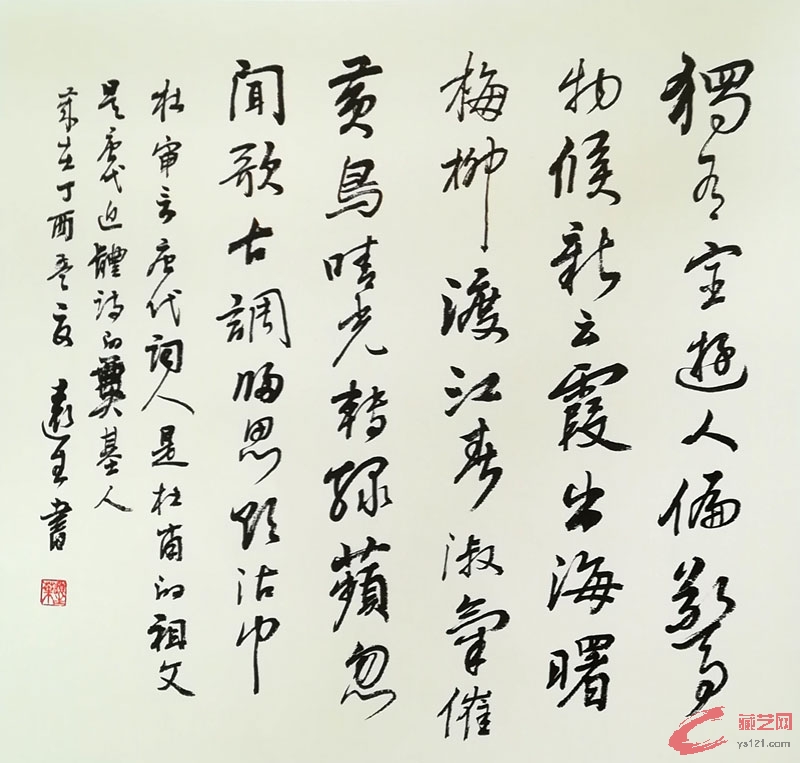 獨有宦遊人偏驚
物候新云霞出海曙
梅柳渡江春淑氣催
黃鳥晴光轉綠蘋忽
聞歌古調歸思欲沾巾
杜审言唐代詞人是杜甫的祖父
是唐代近體诗的奠基人
歲在丁酉夏書
藏艺网
ys121.com